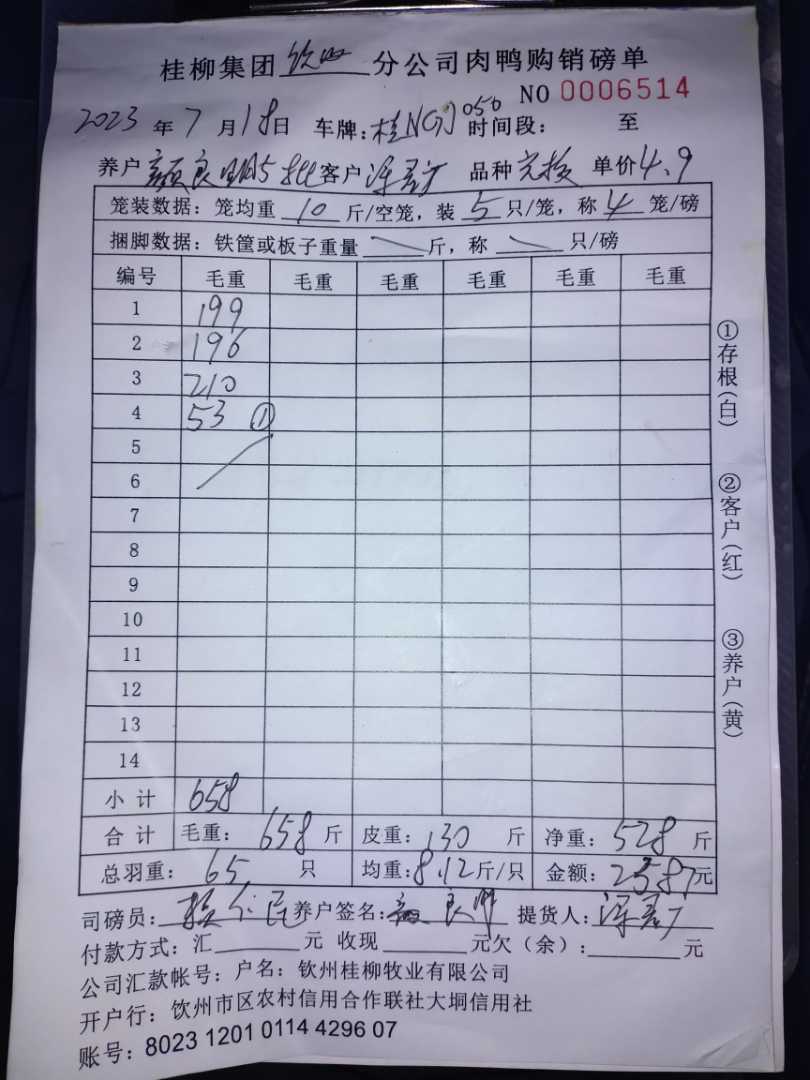 桂柳集团钦州分公司肉鸭购销磅单
NO 0006514
2023年7月18日 车牌:桂N 050 时间段: 至
养户颜良明5批客户 品种 单价4.9
笼装数据:笼均重10斤/空笼,装5只/笼,称4笼/磅
捆脚数据:铁筐或板子重量 斤,称 只/磅
编号 毛重 毛重 毛重 毛重 毛重 毛重
1 199
2 196
3 210
4 53 ①
5
6
7
8
9
10
11
12
13
14
小计 658
合计 毛重:658斤 皮重:130斤 净重:528斤
总羽重:65只 均重:8.12斤/只 金额:2587元
司磅员: 养户签名:颜良明 提货人:
付款方式:汇 元 收现 元欠(余): 元
公司汇款帐号:户名:钦州桂柳牧业有限公司
开户行:钦州市区农村信用合作联社大垌信用社
账号:8023 1201 0114 4296 07
①存根(白)
②客户(红)
③养户(黄)